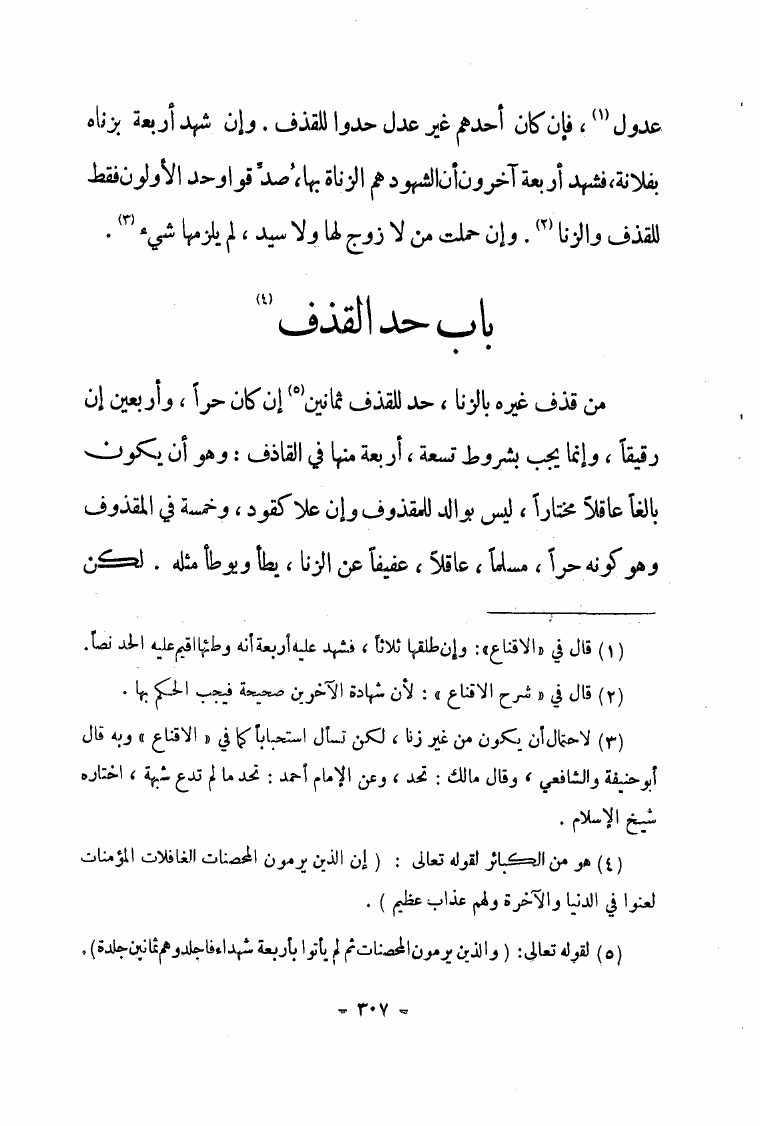 عدول (١) ، فإن كان أحدهم غير عدل حدوا للقذف . وإن شهد أربعة بزناه
بفلانة، فشهد أربعة آخرون أن الشهود هم الزناة بها، صدّقوا وحد الأولون فقط
للقذف والزنا (٢) . وإن حملت من لا زوج لها ولا سيد ، لم يلزمها شيء (٣) .
باب حد القذف (٤)
من قذف غيره بالزنا ، حد للقذف ثمانين (٥) إن كان حراً ، وأربعين إن
رقيقاً ، وإنما يجب بشروط تسعة ، أربعة منها في القاذف : وهو أن يكون
بالغاً عاقلاً مختاراً ، ليس بوالد للمقذوف وإن علا كقود ، وخمسة في المقذوف
وهو كونه حراً ، مسلماً ، عاقلاً ، عفيفاً عن الزنا ، يطأ ويوطأ مثله . لكن
(١) قال في «الاقناع»: وإن طلقها ثلاثاً ، فشهد عليه أربعة أنه وطئها اقيم عليه الحد نصاً.
(٢) قال في « شرح الاقناع » : لأن شهادة الآخرين صحيحة فيجب الحكم بها .
(٣) لاحتمال أن يكون من غير زنا ، لكن تسأل استحباباً كما في « الاقناع » وبه قال
أبو حنيفة والشافعي ، وقال مالك : تحد ، وعن الإمام أحمد : تحد ما لم تدع شبهة ، اختاره
شيخ الإسلام .
(٤) هو من الكبائر لقوله تعالى : ( إن الذين يرمون المحصنات الغافلات المؤمنات
لعنوا في الدنيا والآخرة ولهم عذاب عظيم ) .
(٥) لقوله تعالى: ( والذين يرمون المحصنات ثم لم يأتوا بأربعة شهداء فاجلدوهم ثمانين جلدة).
- ٣٠٧ -